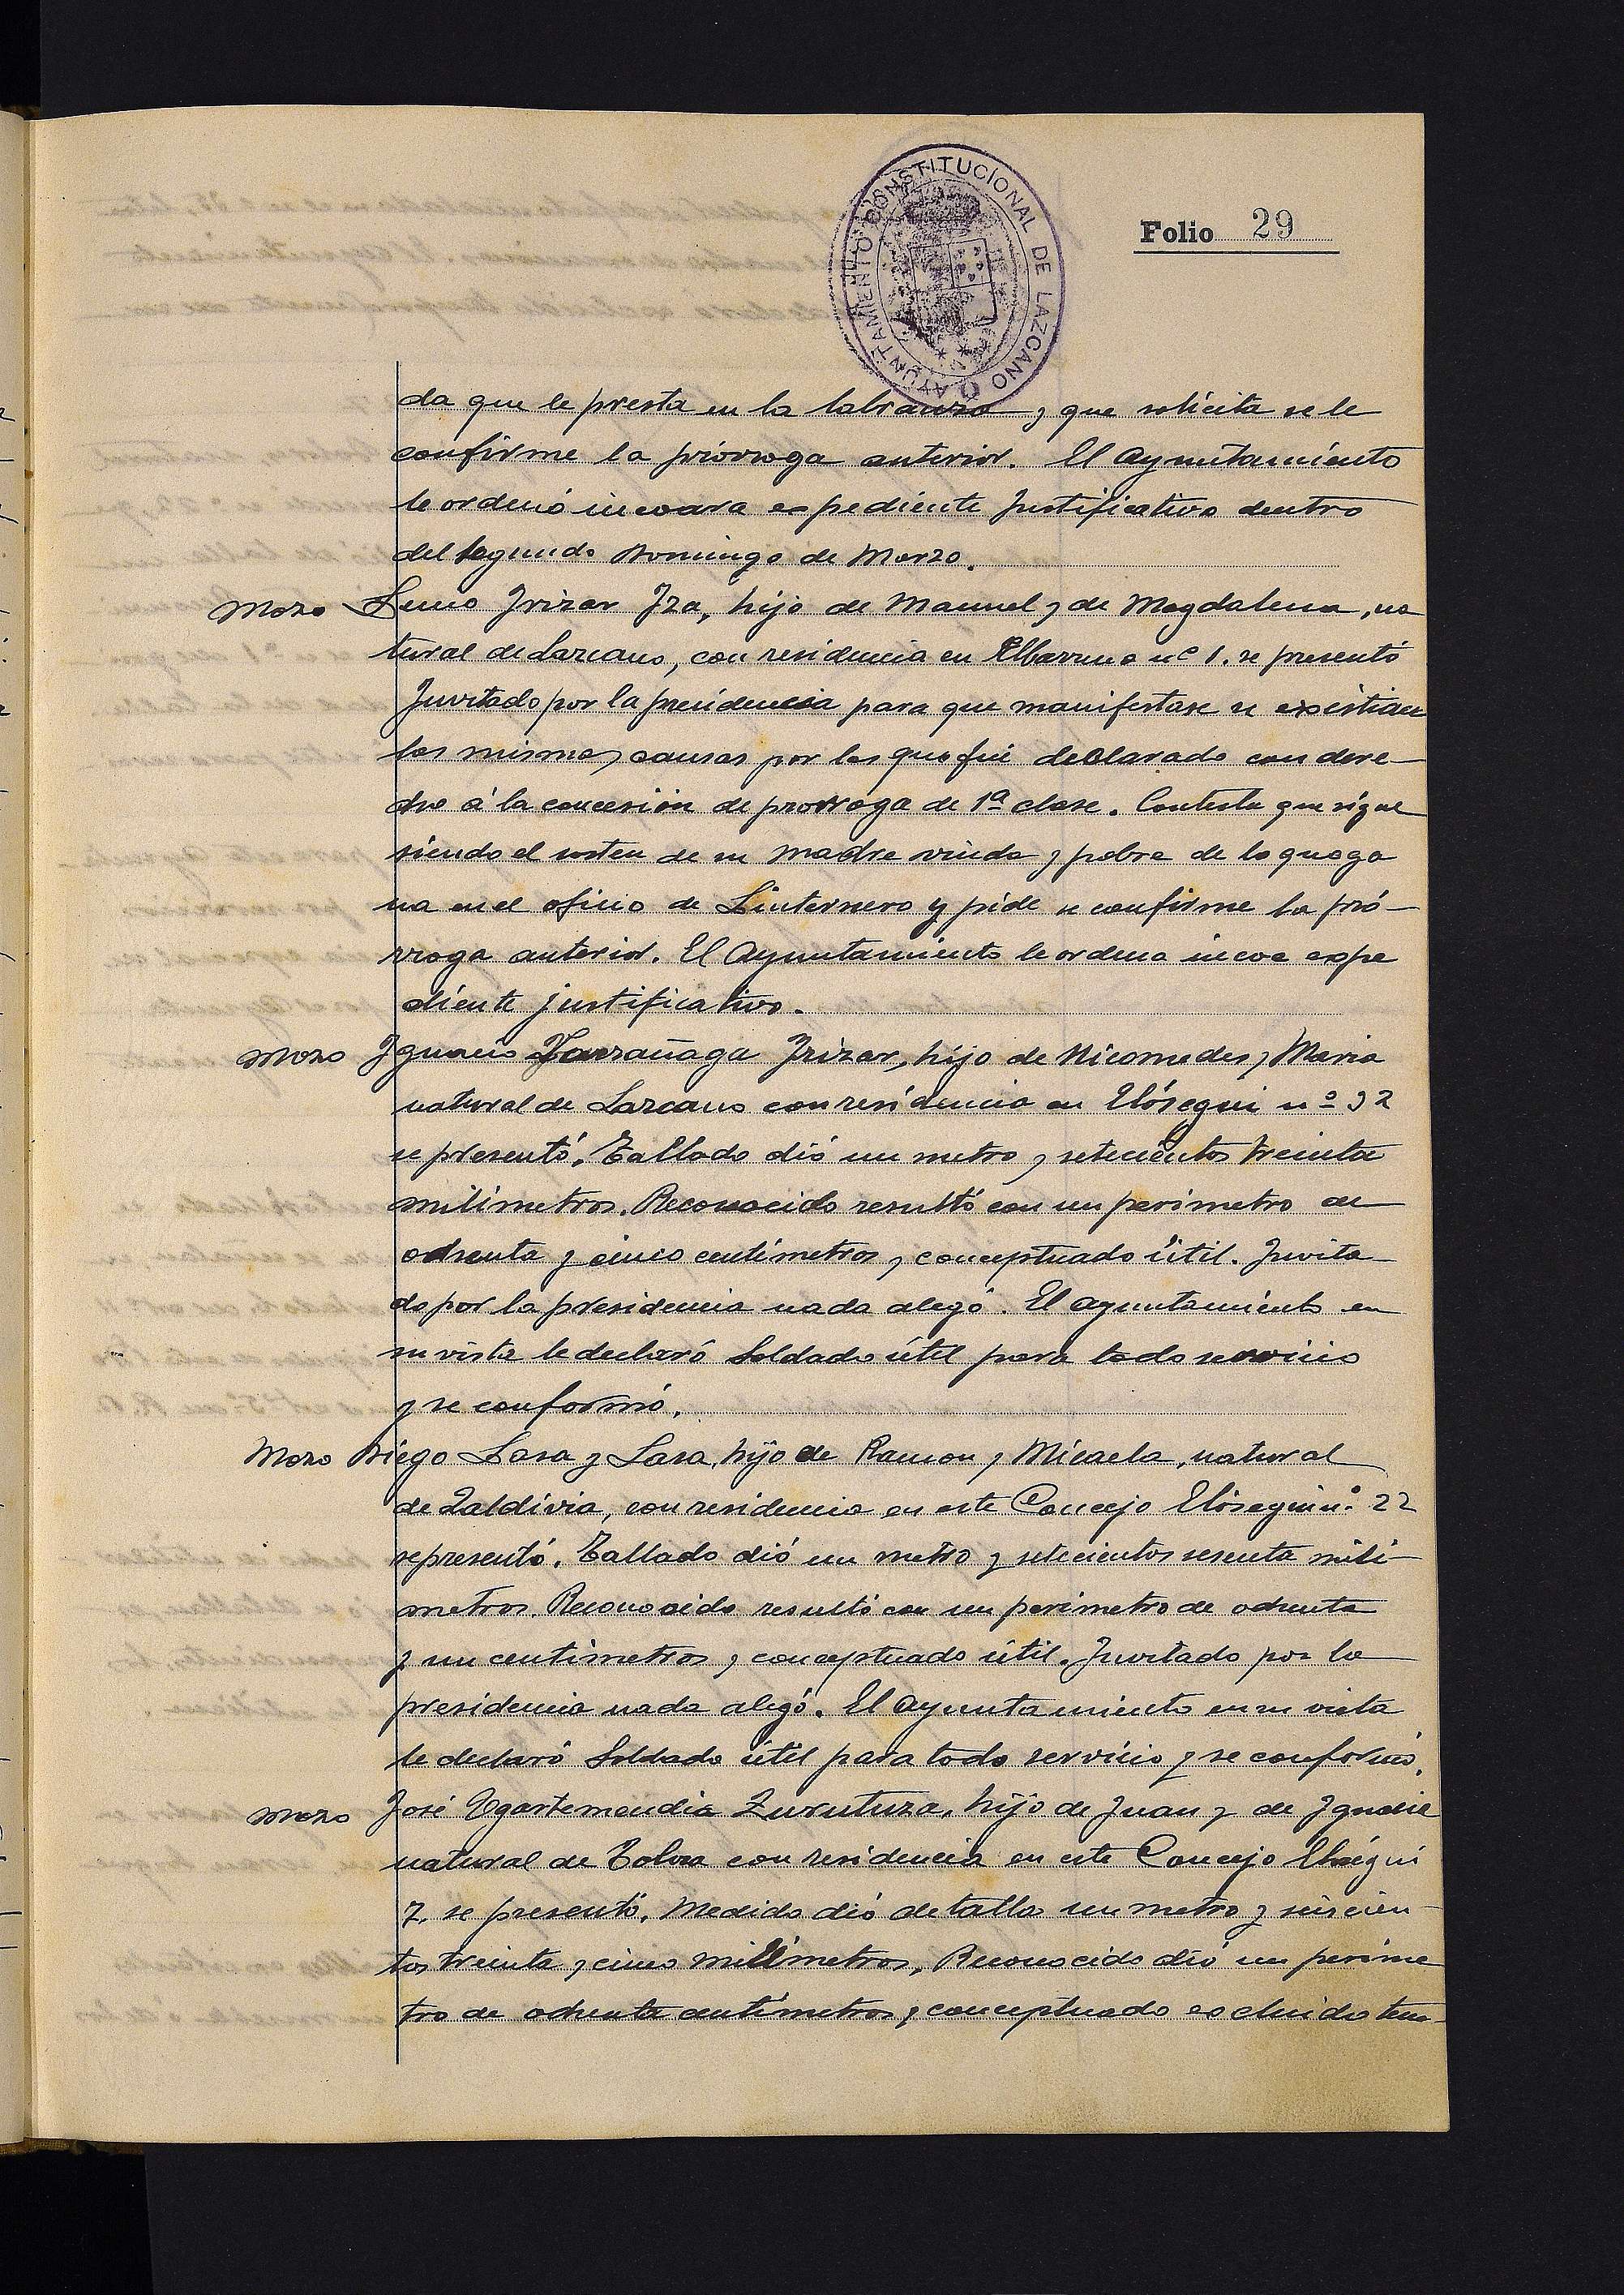 AYUNTAMIENTO CONSTITUCIONAL DE LAZCANO
Folio 29
da que le presta en la labranza y que solicita se le
confirme la prórroga anterior. El Ayuntamiento
le ordenó incoara expediente justificativo dentro
del segundo Domingo de Marzo.
Mozo Irizar Iza, hijo de Manuel y de Magdalena, na
tural de Lazcano, con residencia en nº 1. se presentó
Invitado por la presidencia para que manifestase si existian
las mismas causas por las que fué declarado con dere-
cho á la concesión de prorroga de 1ª clase. Contesta que sigue
siendo el sosten de su madre viuda y pobre de lo que ga
na en el oficio de Linternero y pide se confirme la pró-
rroga anterior. El Ayuntamiento le ordena incoe expe
diente justificativo.
Mozo Ignacio Irizar, hijo de Nicomedes y Maria
natural de Lazcano con residencia en Elósegui nº 32
se presentó. Tallado dió un metro y setecientos treinta
milímetros. Reconocido resultó con un perímetro de
ochenta y cinco centímetros y conceptuado útil. Invita
do por la presidencia nada alegó. El Ayuntamiento en
su vista le declaró Soldado útil para todo servicio
y se conformó.
Mozo Diego Lasa y Lasa, hijo de Ramon y Micaela, natural
de Zaldivia, con residencia en este Concejo Elósegui nº 22
se presentó. Tallado dió un metro y setecientos sesenta milí-
metros. Reconocido resultó con un perímetro de ochenta
y un centímetros y conceptuado útil. Invitado por la
presidencia nada alegó. El Ayuntamiento en su vista
le declaró Soldado útil para todo servicio y se conformó.
Mozo José Ugartemendia Zurutuza, hijo de Juan y de
natural de Tolosa con residencia en este Concejo Elósegui
7. se presentó. Medido dió de talla un metro y seiscien-
tos treinta y cinco milímetros. Reconocido dió un períme
tro de ochenta centímetros y conceptuado excluido tem-